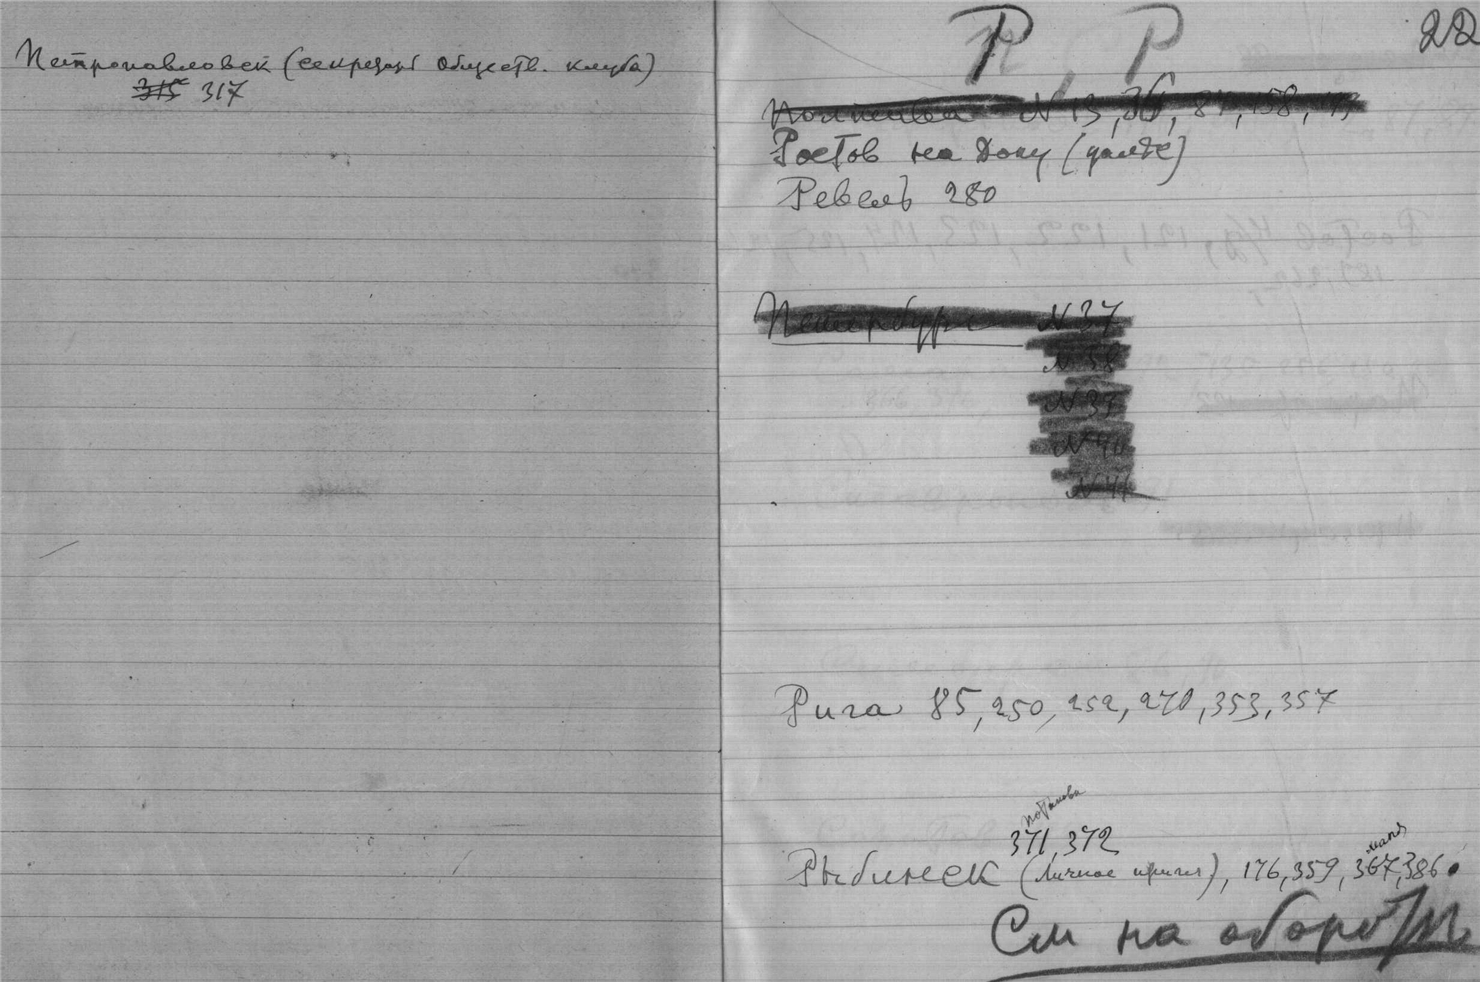 Петропавловск (секретарь обществ. клуба)
315 317
22
Р, Р
Полтава N 13, 36, 87, 158,
Ростов на Дону (далее)
Ревель 280
Петербург N 37
N 38
N 39
N 40
N 41
Рига 85, 250, 252, 270, 353, 357
371, 372
Рыбинск (личное пригл), 176, 359, 367, 386.
См на обороте